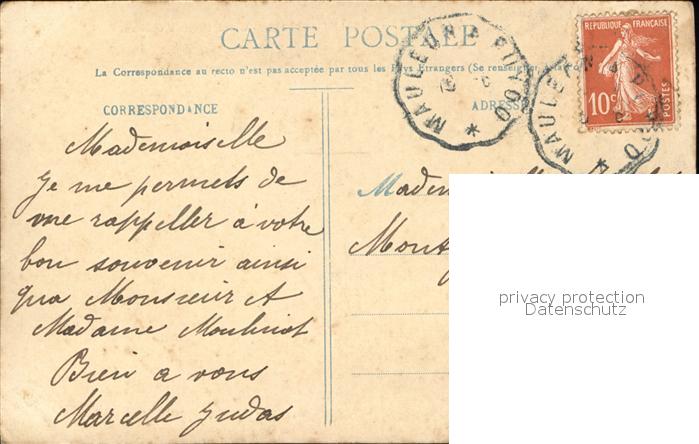 CARTE POSTALE
La Correspondance au recto n'est pas acceptée par tous les Pays Etrangers (Se renseigner
CORRESPONDANCE
ADRESSE
MAULEON A PUYOO
MAULEON A PUYOO
REPUBLIQUE FRANÇAISE
10c
POSTES
Mademoiselle
Je me permets de
me rappeller à votre
bon souvenir ainsi
qua Monsieur et
Madame
Bien a vous
Marcelle Judas
Madem
Mont
privacy protection
Datenschutz